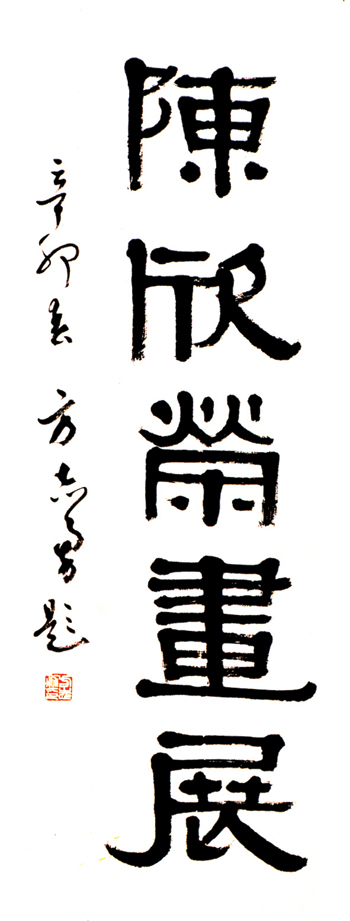 陳欣榮畫展
辛卯春 方志勇題